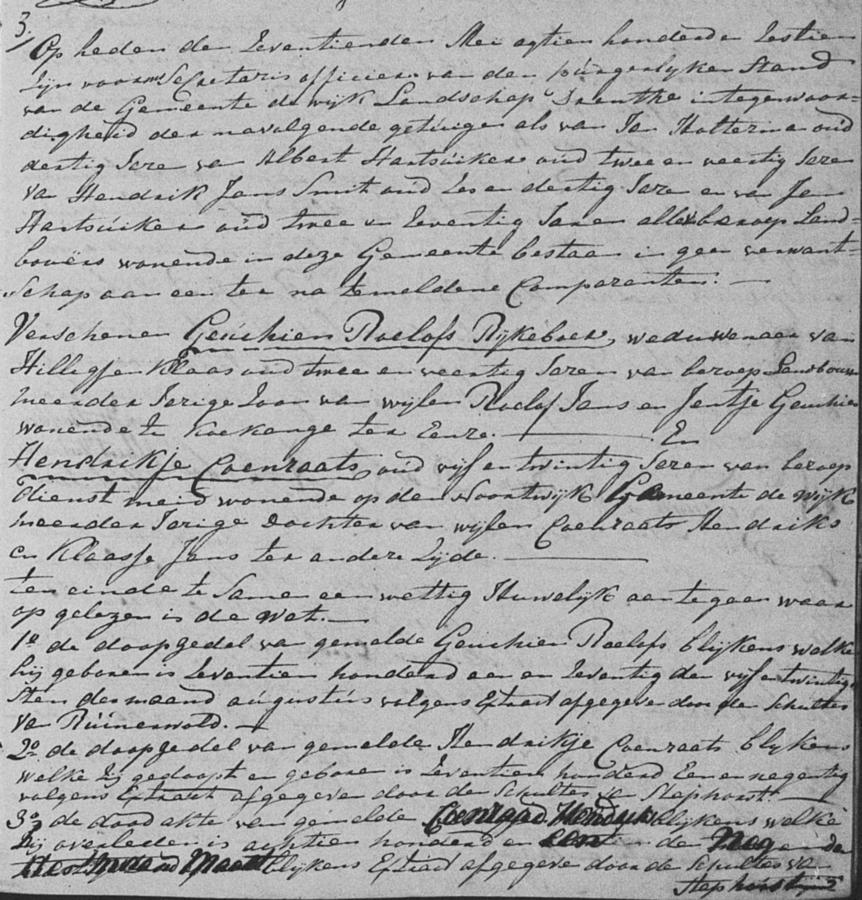 3,
Op heden den Zeventienden Mei agtien honderden Zestien
Zijn voor mij Secretaris officier van den burgerlyken Stand
van de Gemeente de wijk Landschap Drenthe integenwoor-
digheid der navolgende getuigen als van Jan Holterma oud
dertig Jaren van Albert Hartsuiker oud twee en veertig Jaren
van Hendrik Jans Smit oud Zes en dertig Jaren en van Jan
Hartsuiker oud twee en Zeventig Jaren alle beroep Land-
bouërs wonende in deze Gemeente bestaan in geen verwant-
Schap aan een ter na te meldene Comparanten: —
Verschenen Geuchien Roelofs Rijkeboer, weduwenaar van
Hilligjen Klaas oud twee en veertig Jaren van beroep Landbouwer
meerder Jarige Zoon van wijlen Roelof Jans en Jentje Geuchies
wonende te Koekange ter Eenre. — En
Hendrikje Coenraats, oud vijf en twintig Jaren van beroep
Dienst meid wonende op den Noortwijk Gemeente de Wijk
meerder Jarige Dochter van wijlen Coenraats Hendriks
en Klaasje Jans ter andere Zijde. —
ten einde te Samen een wettig Huwelijk aan te gaan waar
op gelezen is de Wet. —
1o de doopgedel van gemelde Geuchien Roelofs blijkens welke
hij geboren is Zeventien honderd een en Zeventig den vijf en twintig
Sten des maand augustus volgens Extract afgegeven door den Schultes
van Ruinerwold. —
2o de doopgedel van gemelde Hendrikje Coenraats blykens
welke Zij gedoopt en geboren is Zeventien honderd Een en negentig
volgens Extract afgegeven door de Schultes van Staphorst. —
3o de dood akte van gemelde Coenraad Hendriks blijkens welke
Hij overleden is achtien honderd en een den Neg ende
maand Maart blijkens Extract afgegeven door de Schultes van
Staphorst